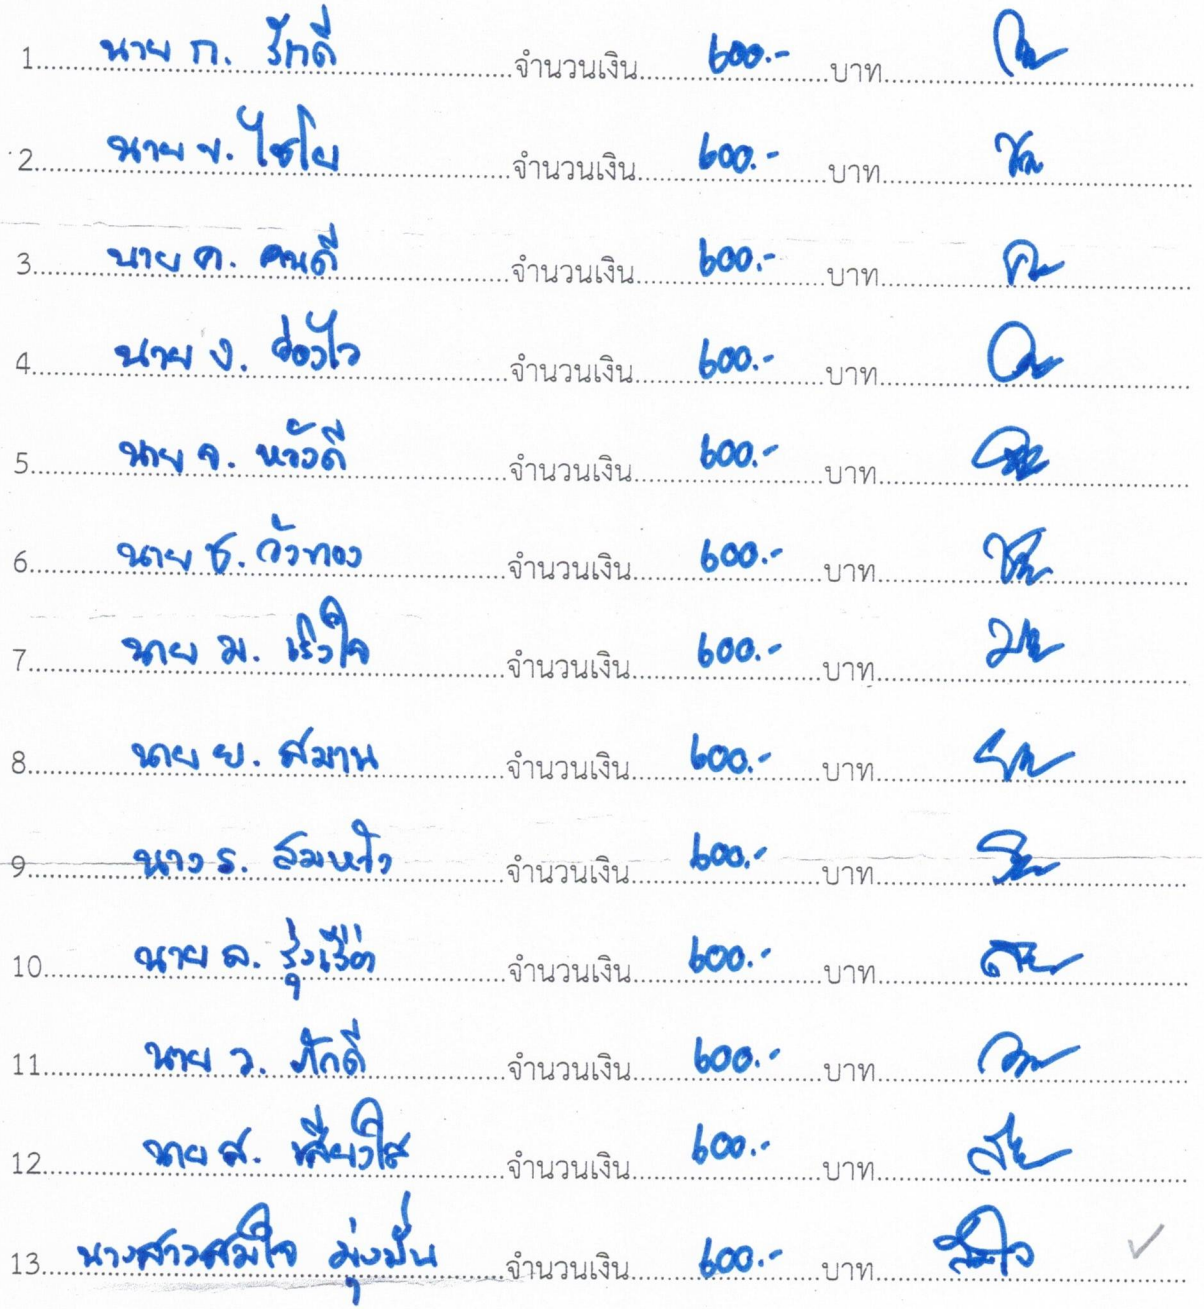 1. นาย ก. รักดี จำนวนเงิน 600.- บาท
2. นาย ข. ไชโย จำนวนเงิน 600.- บาท
3. นาย ค. คนดี จำนวนเงิน 600.- บาท
4. นาย ง. ว่องไว จำนวนเงิน 600.- บาท
5. นาย จ. หวังดี จำนวนเงิน 600.- บาท
6. นาย ช. วังทอง จำนวนเงิน 600.- บาท
7. นาย ม. เริงใจ จำนวนเงิน 600.- บาท
8. นาย ย. สมาน จำนวนเงิน 600.- บาท
9. นาง ร. สมหวัง จำนวนเงิน 600.- บาท
10. นาย ล. จำนวนเงิน 600.- บาท
11. นาย ว. ภักดี จำนวนเงิน 600.- บาท
12. นาย ส. เสียงใส จำนวนเงิน 600.- บาท
13. นางสาวสมใจ มุ่งมั่น จำนวนเงิน 600.- บาท สมใจ